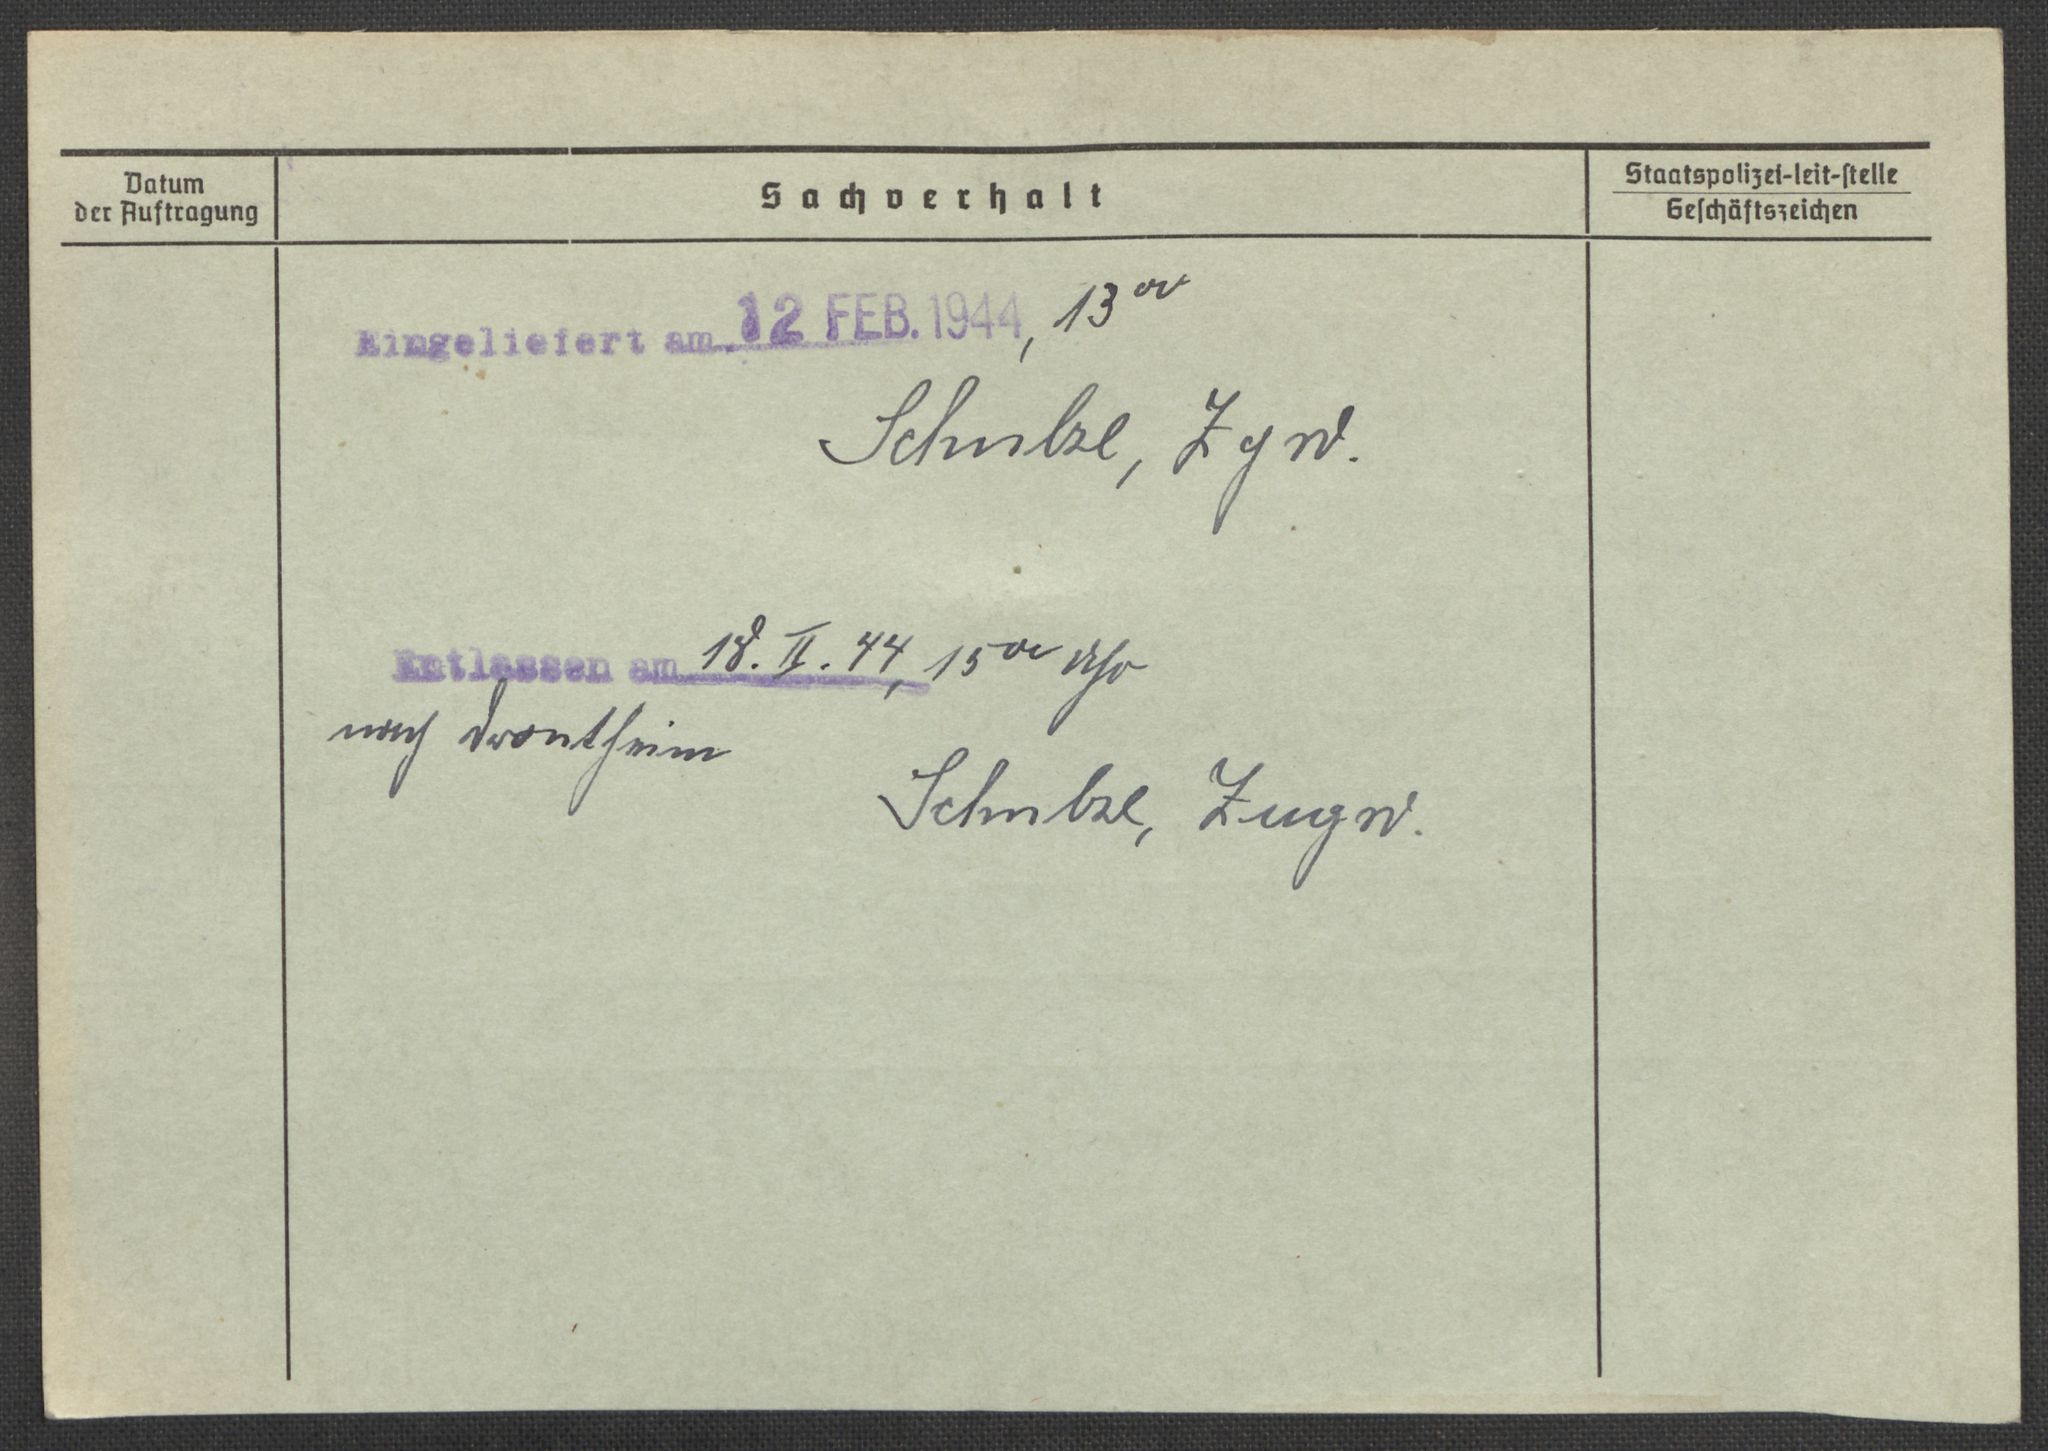 Datum
der Auftragung
Sachverhalt
Staatspolizei-leit-stelle
Geschäftszeichen
Eingeliefert am 12 FEB. 1944, 13⁰⁰
Schulze, Zgw.
Entlassen am 18. II. 44, 15⁰⁰ Uhr
nach Drontheim
Schulze, Zugw.